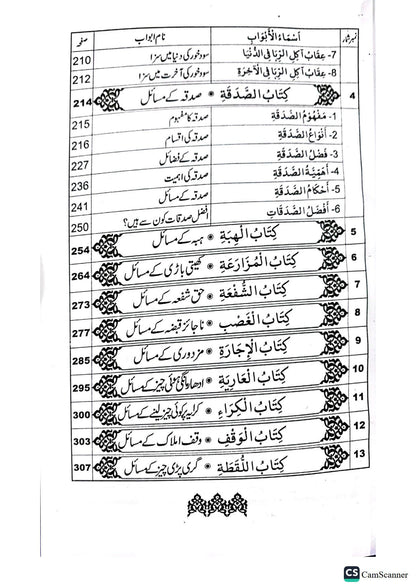 نمبر شمار أَسْمَاءُ الْأَبْوَابِ نام ابواب صفحہ
7- عِقَابُ آكِلِ الرِّبَا فِي الدُّنْيَا سود خور کی دنیا میں سزا 210
8- عِقَابُ آكِلِ الرِّبَا فِي الْآخِرَةِ سود خور کی آخرت میں سزا 212
4 كِتَابُ الصَّدَقَةِ صدقہ کے مسائل 214
1- مَفْهُوْمُ الصَّدَقَةِ صدقہ کا مفہوم 215
2- أَنْوَاعُ الصَّدَقَةِ صدقہ کی اقسام 216
3- فَضْلُ الصَّدَقَةِ صدقہ کے فضائل 227
4- أَهَمِّيَّةُ الصَّدَقَةِ صدقہ کی اہمیت 236
5- أَحْكَامُ الصَّدَقَةِ صدقہ کے مسائل 241
6- أَفْضَلُ الصَّدَقَاتِ افضل صدقات کون سے ہیں؟ 250
5 كِتَابُ الْهِبَةِ ہبہ کے مسائل 254
6 كِتَابُ الْمُزَارَعَةِ کھیتی باڑی کے مسائل 264
7 كِتَابُ الشُّفْعَةِ حق شفعہ کے مسائل 273
8 كِتَابُ الْغَصْبِ ناجائز قبضہ کے مسائل 277
9 كِتَابُ الْإِجَارَةِ مزدوری کے مسائل 285
10 كِتَابُ الْعَارِيَةِ ادھار مانگی ہوئی چیز کے مسائل 295
11 كِتَابُ الْكِرَاءِ کرایہ پر کوئی چیز لینے کے مسائل 300
12 كِتَابُ الْوَقْفِ وقف املاک کے مسائل 303
13 كِتَابُ اللُّقَطَةِ گری پڑی چیز کے مسائل 307
CS CamScanner